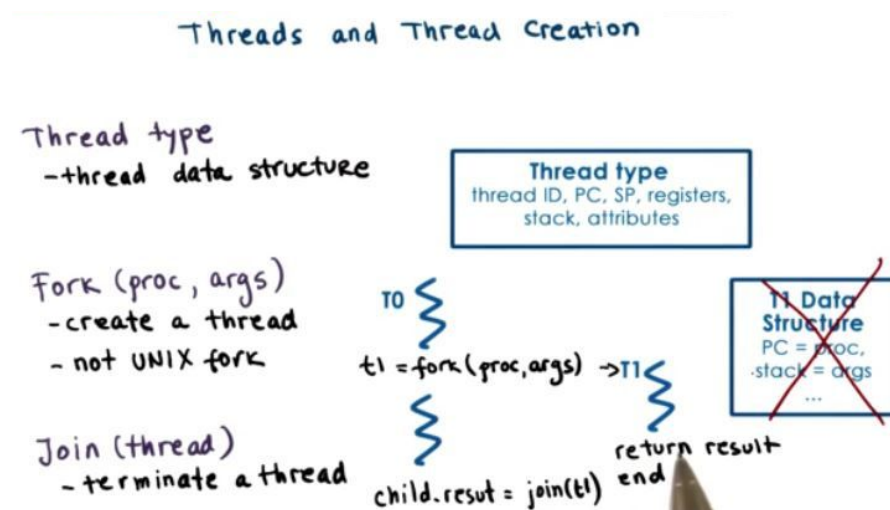 Threads and Thread Creation
Thread type
-thread data structure
Thread type
thread ID, PC, SP, registers,
stack, attributes
Fork (proc, args)
-create a thread
- not UNIX fork
T0
t1 = fork(proc,args) → T1
T1 Data
Structure
PC = proc,
stack = args
...
Join (thread)
- terminate a thread
child.resut = join(t1)
return result
end